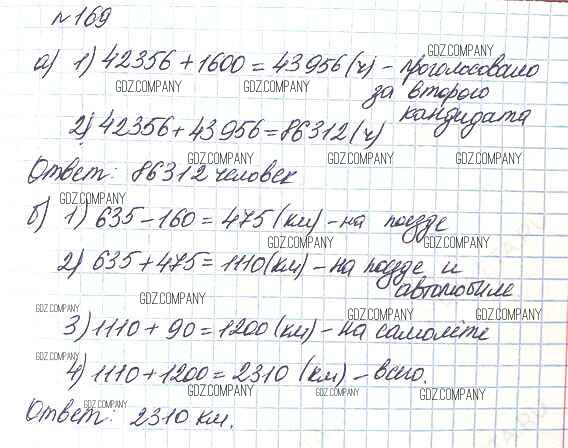 №169
GDZ.COMPANY
а) 1) 42356 + 1600 = 43956 (ч) - проголосовало
GDZ.COMPANY GDZ.COMPANY
за второго
кандидата
2) 42356 + 43956 = 86312 (ч)
GDZ.COMPANY GDZ.COMPANY GDZ.COMPANY
Ответ: 86312 человек
GDZ.COMPANY
б) 1) 635 - 160 = 475 (км) - на поезде
GDZ.COMPANY GDZ.COMPANY
2) 635 + 475 = 1110 (км) - на поезде и
автомобиле
GDZ.COMPANY
GDZ.COMPANY GDZ.COMPANY GDZ.COMPANY
3) 1110 + 90 = 1200 (км) - на самолёте
GDZ.COMPANY
4) 1110 + 1200 = 2310 (км) - всего.
GDZ.COMPANY GDZ.COMPANY GDZ.COMPANY
GDZ.COMPANY
Ответ: 2310 км.